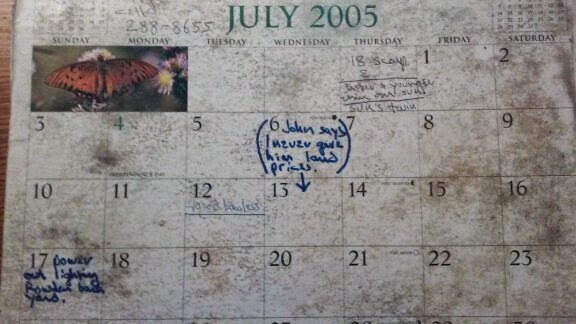 call
288-8655
JULY 2005
SUNDAY MONDAY TUESDAY WEDNESDAY THURSDAY FRIDAY SATURDAY
18 Scorp
&
younger
than our sun
sun's twin
1 2
3 4 5 6 7 8 9
INDEPENDENCE DAY
(John says
I never gave
him land
prices.)
10 11 12 13 14 15 16
Lawless
17 18 19 20 21 22 23
power
out lighting
back
yard.